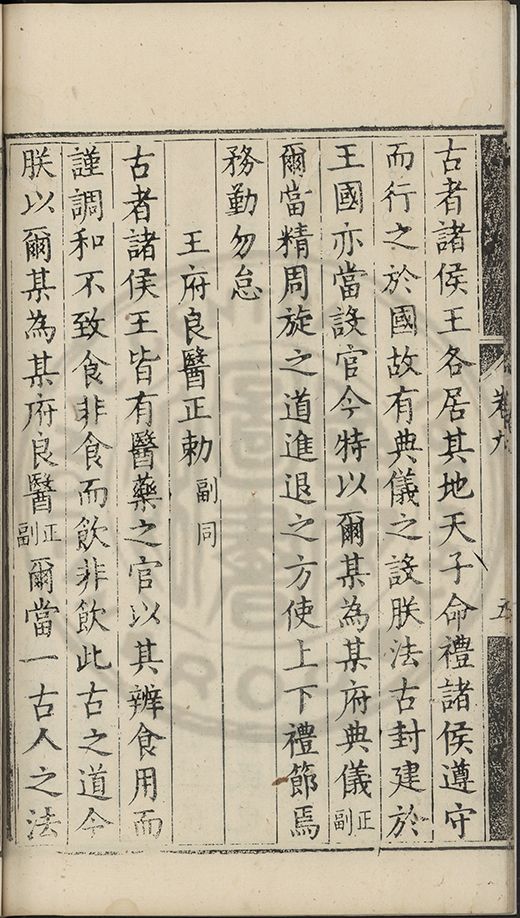 古者諸侯王各居其地天子命禮諸侯遵守
而行之於國故有典儀之設朕法古封建於
王國亦當設官今特以爾某為某府典儀正副
爾當精周旋之道進退之方使上下禮節焉
務勤勿怠
王府良醫正勅副同
古者諸侯王皆有醫藥之官以其辨食用而
謹調和不致食非食而飲非飲此古之道今
朕以爾某為某府良醫正副爾當一古人之法
卷九
五